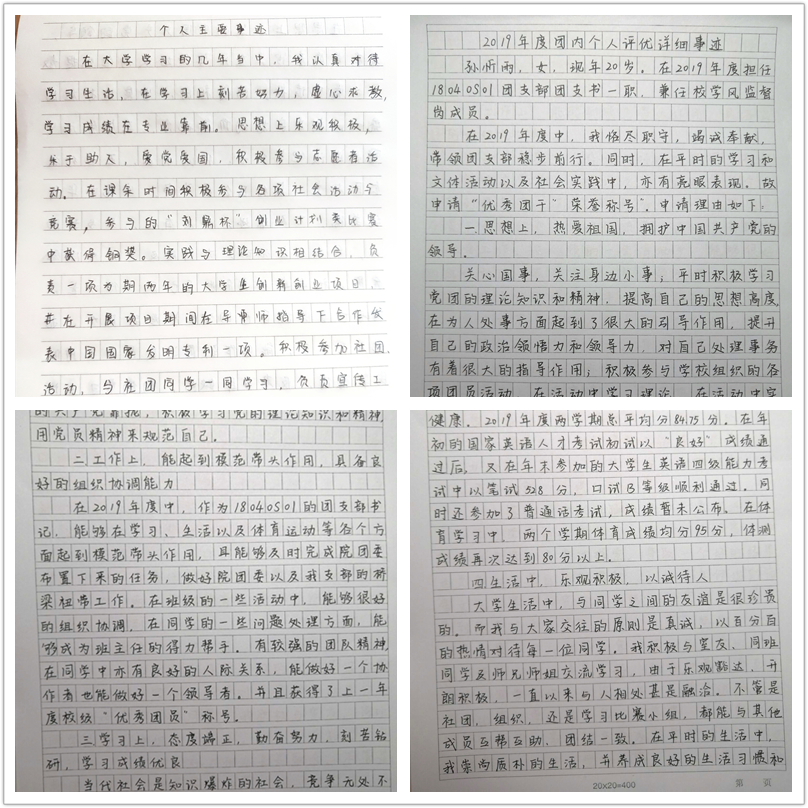 个人主要事迹
在大学学习的几年当中,我认真对待
学习生活,在学习上刻苦努力,虚心求教,
学习成绩在专业靠前。思想上乐观积极,
乐于助人,爱党爱国,积极参与志愿者活
动。在课余时间积极参与各项社会活动与
竞赛,参与的“刘鼎杯”创业计划类比赛
中获得铜奖。实践与理论知识相结合,负
责一项为期两年的大学生创新创业项目,
并在开展项目期间在导师指导下合作发
表中国国家发明专利一项。积极参加社团
活动,与社团同学一同学习,负责宣传工
2019年度团内个人评优详细事迹
孙忻雨,女,现年20岁。在2019年度担任
18040501团支部团支书一职,兼任校学风监督
岗成员。
在2019年度中,我恪尽职守,竭诚奉献,
带领团支部稳步前行。同时,在平时的学习和
文体活动以及社会实践中,亦有亮眼表现。故
申请“优秀团干”荣誉称号”。申请理由如下:
一.思想上,热爱祖国,拥护中国共产党的
领导。
关心国事,关注身边小事;平时积极学习
党团的理论知识和精神,提高自己的思想高度
在为人处事方面起到了很大的引导作用,提升
自己的政治领悟力和领导力,对自己处理事务
有着很大的指导作用;积极参与学校组织的各
项团员活动,在活动中学习理论,在活动中实
的共产党靠拢,积极学习党的理论知识和精神,
用党员精神来规范自己。
二.工作上,能起到模范带头作用,具备良
好的组织协调能力
在2019年度中,作为18040501的团支部书
记,能够在学习、生活以及体育运动等各个方
面起到模范带头作用,且能够及时完成院团委
布置下来的任务,做好院团委以及我支部的桥
梁纽带工作。在班级的一些活动中,能够很好
的组织协调,在同学的一些问题处理方面,能
够成为班主任的得力帮手。有较强的团队精神,
在同学中亦有良好的人际关系,能做好一个协
作者也能做好一个领导者。并且获得了上一年
度校级“优秀团员”称号。
三.学习上,态度端正,勤奋努力,刻苦钻
研,学习成绩优良
当代社会是知识爆炸的社会,竞争无处不
健康。2019年度两学期总平均分84.75分。在年
初的国家英语人才考试初试以“良好”成绩通
过后,又在年末参加的大学生英语四级能力考
试中以笔试528分,口试B等级顺利通过。同
时还参加了普通话考试,成绩暂未公布。在体
育学习中,两个学期体育成绩均分95分,体测
成绩再次达到80分以上。
四.生活中,乐观积极,以诚待人
大学生活中,与同学之间的友谊是很珍贵
的。而我与大家交往的原则是真诚,以百分百
的热情对待每一位同学。我积极与室友、同班
同学及师兄师姐交流学习,由于乐观豁达,开
朗积极,一直以来与人相处甚是融洽。不管是
社团,组织,还是学习比赛小组,都能与其他
成员互帮互助、团结一致。在平时的生活中,
我崇尚质朴的生活,并养成良好的生活习惯和
20×20=400 第 页